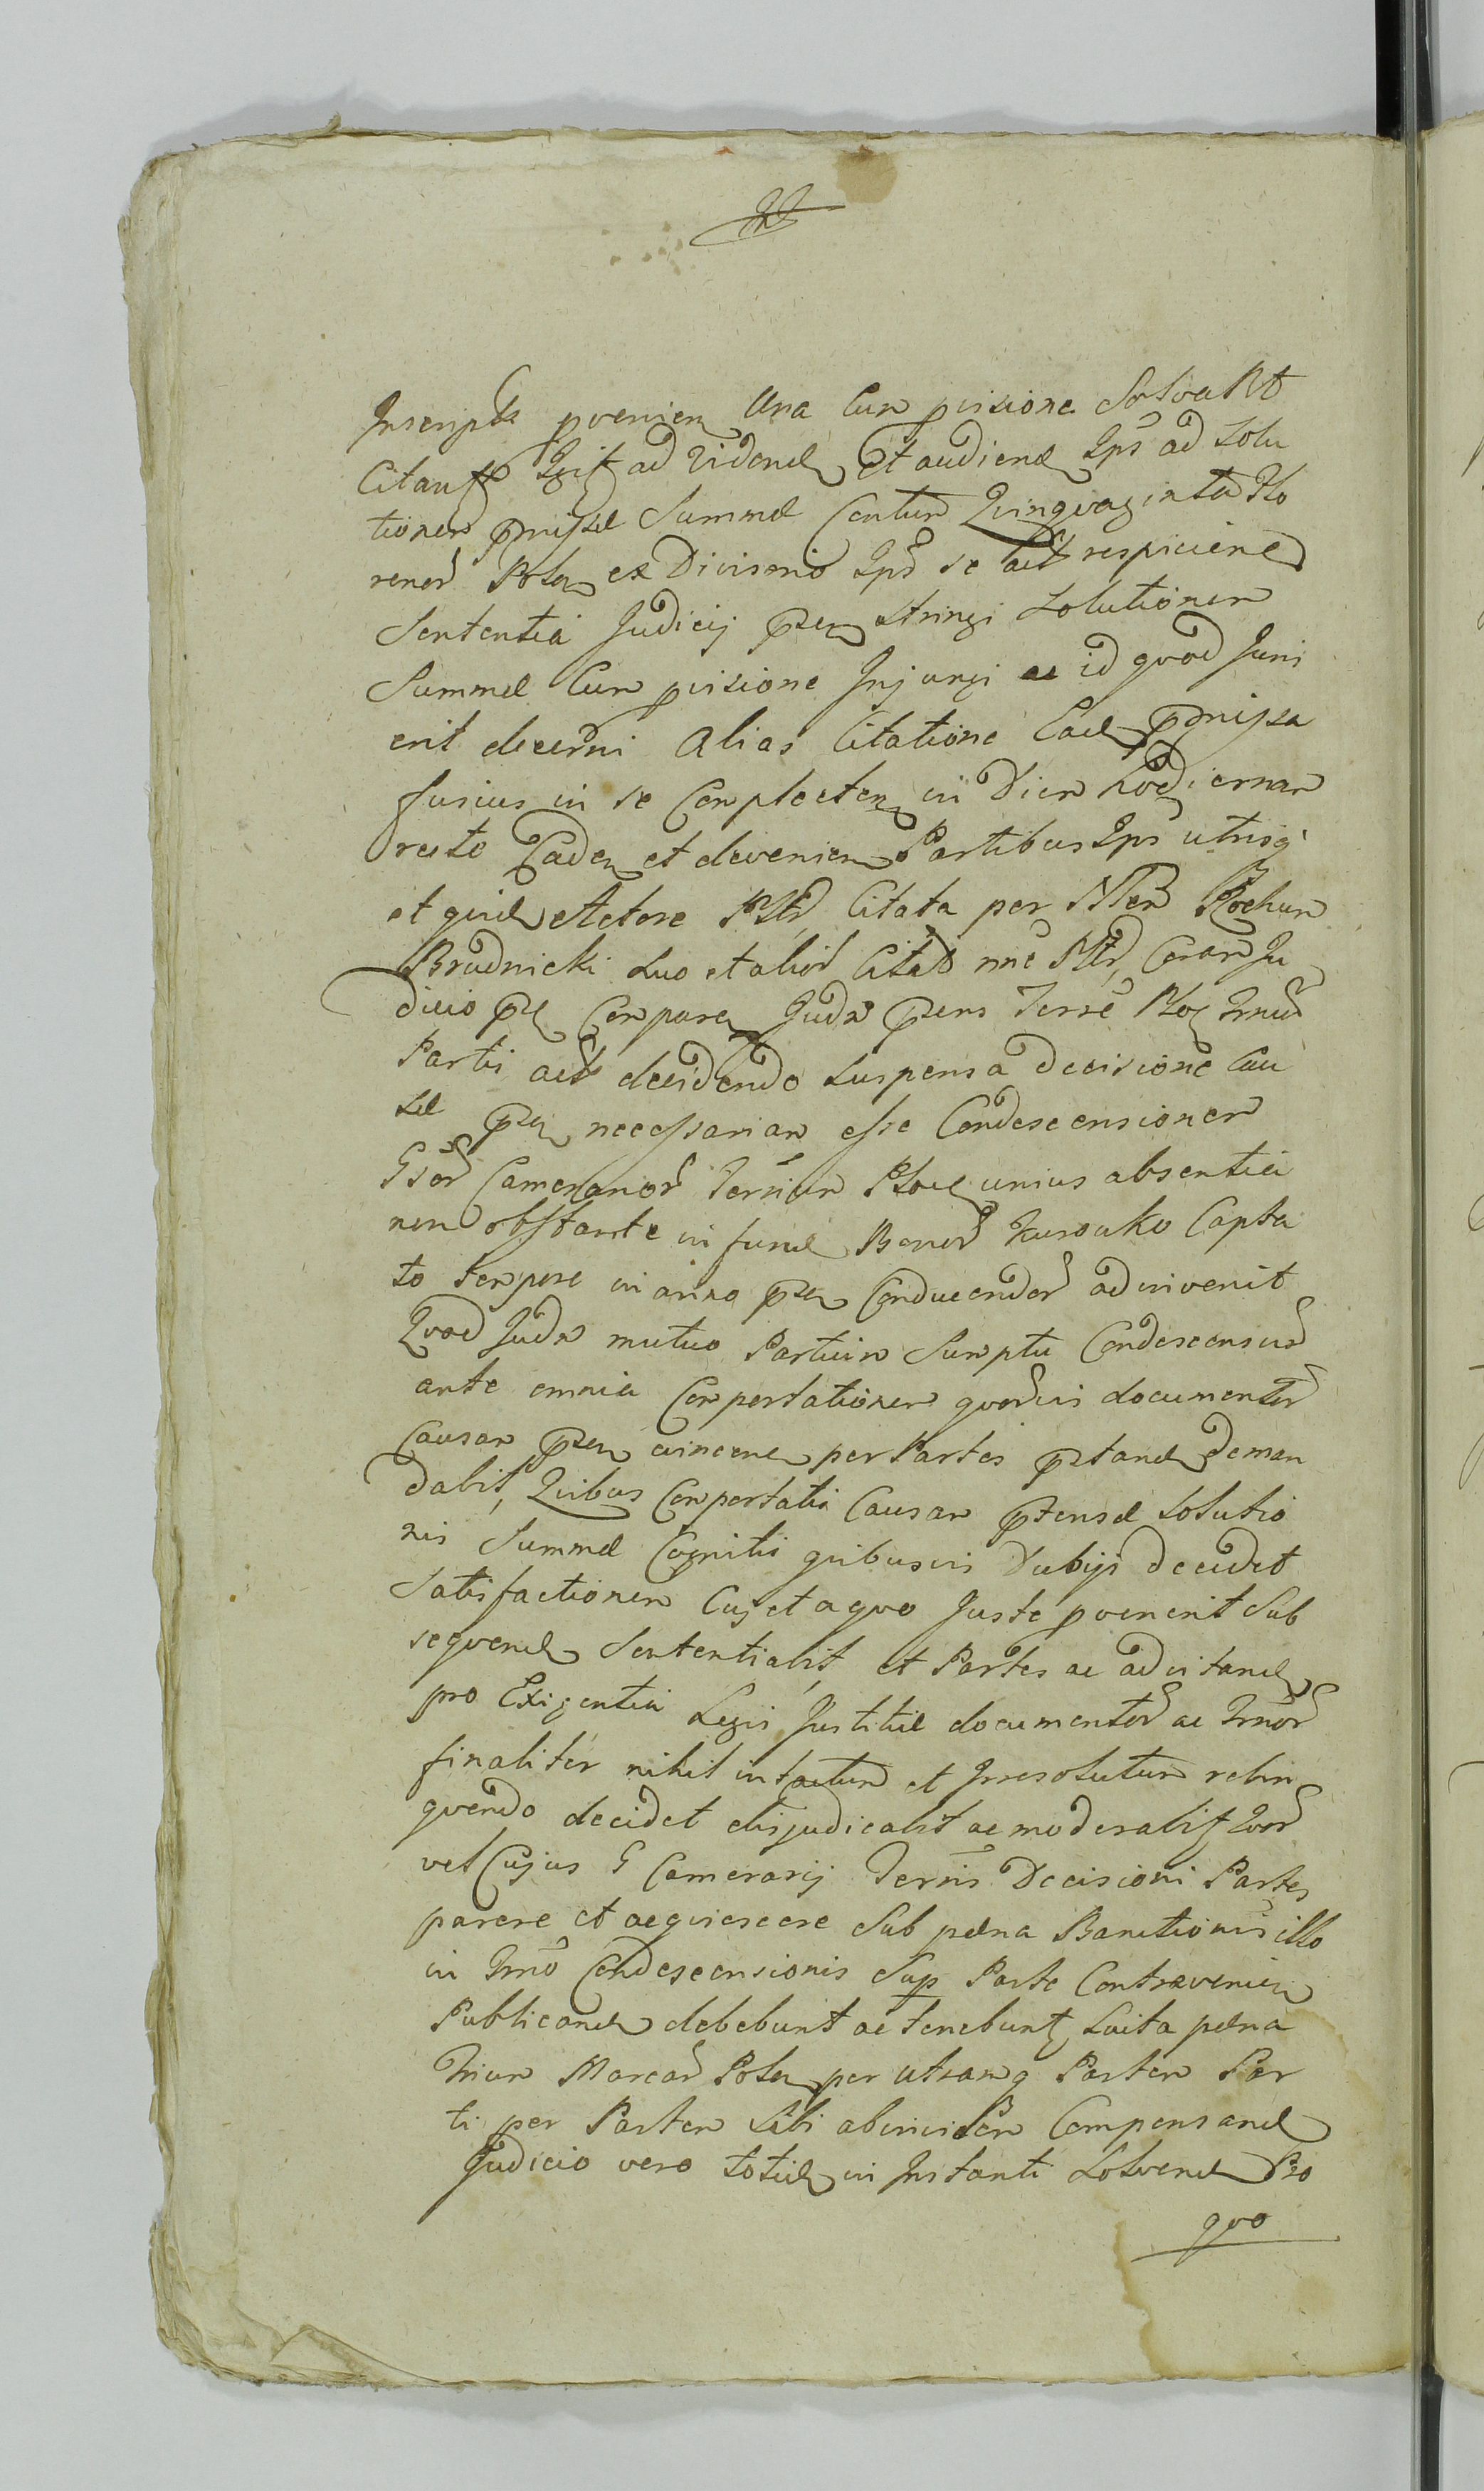 Inscripte pvenien Una Cum pvisione Solvat
Citauit Igit ad Vidend Et audiend Ips ad Solu
tionem pmissae Summae Centum Quinquaginta Flo
renor Polon ex Divisorio Ips se act respiciend
Sententia Judicij psen stringi Solutionem
Summae Cum pvisione Injungi ac id quod Juri
erit decerni Alias Citatione Ead pmissa
fusius in se Complecten in Diem hodiernam
recte Caden et devenien Partibus Ips utrisq
et quid Actore Mtr Citata per Mten Rochum
Brudnicki suo et alior Citat nne Mtr Coram Ju
dicio psen Comparen Judm psens Terre Ploc Trmu
Parti act decidendo Suspensa decisione Cau
sae psen necessariam esse Condescensionem
Gsor Camerarior Terrium Ploc unius absentia
non obstante in fund Bonor Kurowko Capta
to tempore in anno psen Conducendor adinvenit
Quod Judm mutuo Partium Sumptu Condescensur
ante omnia Comportationem quorvis documentor
Causam psen evincend per Partes pstand deman
dabit, Quibus Comportatis Causam ptensae Solutio
nis Summae Cognitis quibusvis Dubijs decidet
Satisfactionem Cuj et a quo Juste pvenerit Sub
sequend Sententiabit, et Partes ac adcitand
pro Exigentia Legis Justitiae documentor ac Trmor
finaliter nihil intactum et Irresolutum relin
quendo decidet disjudicabit ac moderabit Quor
vel Cujus G Camerarij Terris Decisioni Partes
parere et acquiescere Sub paena Banitionis illo
in Trmo Condescensionis Sup Parte Contravenien
Publicand debebunt ac tenebunt Luita paena
Trium Marcar Polon per utramq Partem Par
ti per Partem Sibi abinvicem Compensand
Judicio vero totid in Instanti Solvend Pro
quo